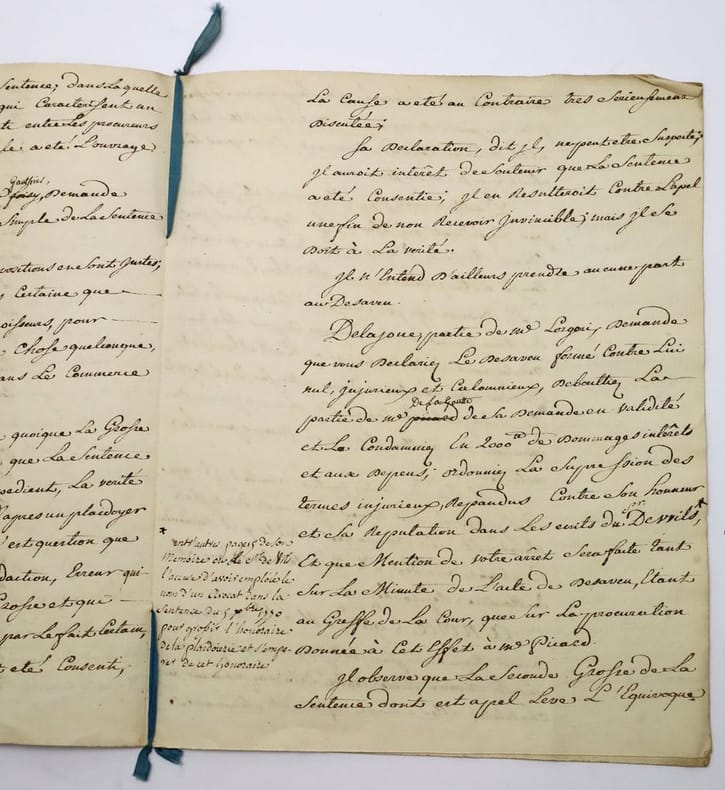 Sentence; dans Laquelle
qui Caracterisent un
entre Les procureurs
le a eté L'ouvrage
Gaultier,
Demande
Simple de La Sentence
positions en Sont justes;
Certaine que
pour
Chose quelconque,
ans Le Commerce
quoique La Grosse
que La Sentence
pedient, La verité
apres un plaidoyer
est question que
daction, Erreur qui
Grosse et que
par Le fait Certain,
eté Consenti,
La Cause a eté au Contraire tres Serieusement
Discutée;
Sa Declaration, dit jl, ne peut etre Suspecte;
jl auroit interêt de Soutenir que La Sentence
a eté Consentie; jl en Resulteroit Contre L'apel
une fin de non Recevoir jnvincible; mais jl Se
Doit à La verité.
jl n'Entend D'ailleurs prendre aucune part
au Desaveu.
Delajoue, partie de me Demande
que vous Declariez Le Desaveu formé Contre Lui
nul, jnjurieux et Calomnieux, Deboutiez La
De La Goutte
partie de me picard de Sa Demande en validité
et La Condamniez En 2000 de Dommages interêts
et aux Depens; ordonniez La Supression des
termes injurieux, Repandus Contre Son honneur
et Sa Reputation dans Les ecrits du Sr. De *
Et que Mention de votre arrêt Sera faite tant
Sur La Minute de L'acte de Desaveu, Etant
au Greffe de La Cour, que Sur La procuration
Donnée à Cet Effet à me Picard.
jl observe que La Seconde Grosse de La
Sentence dont est apel Leve L'Equivoque
*
entr'autres pages de son
Memoire où le Sr. de
l'accuse d'avoir emploié le
nom d'un Avocat dans la
Sentence du
pour grossir l'honoraire
de la plaidoierie et s'empa-
rer de cet honoraire